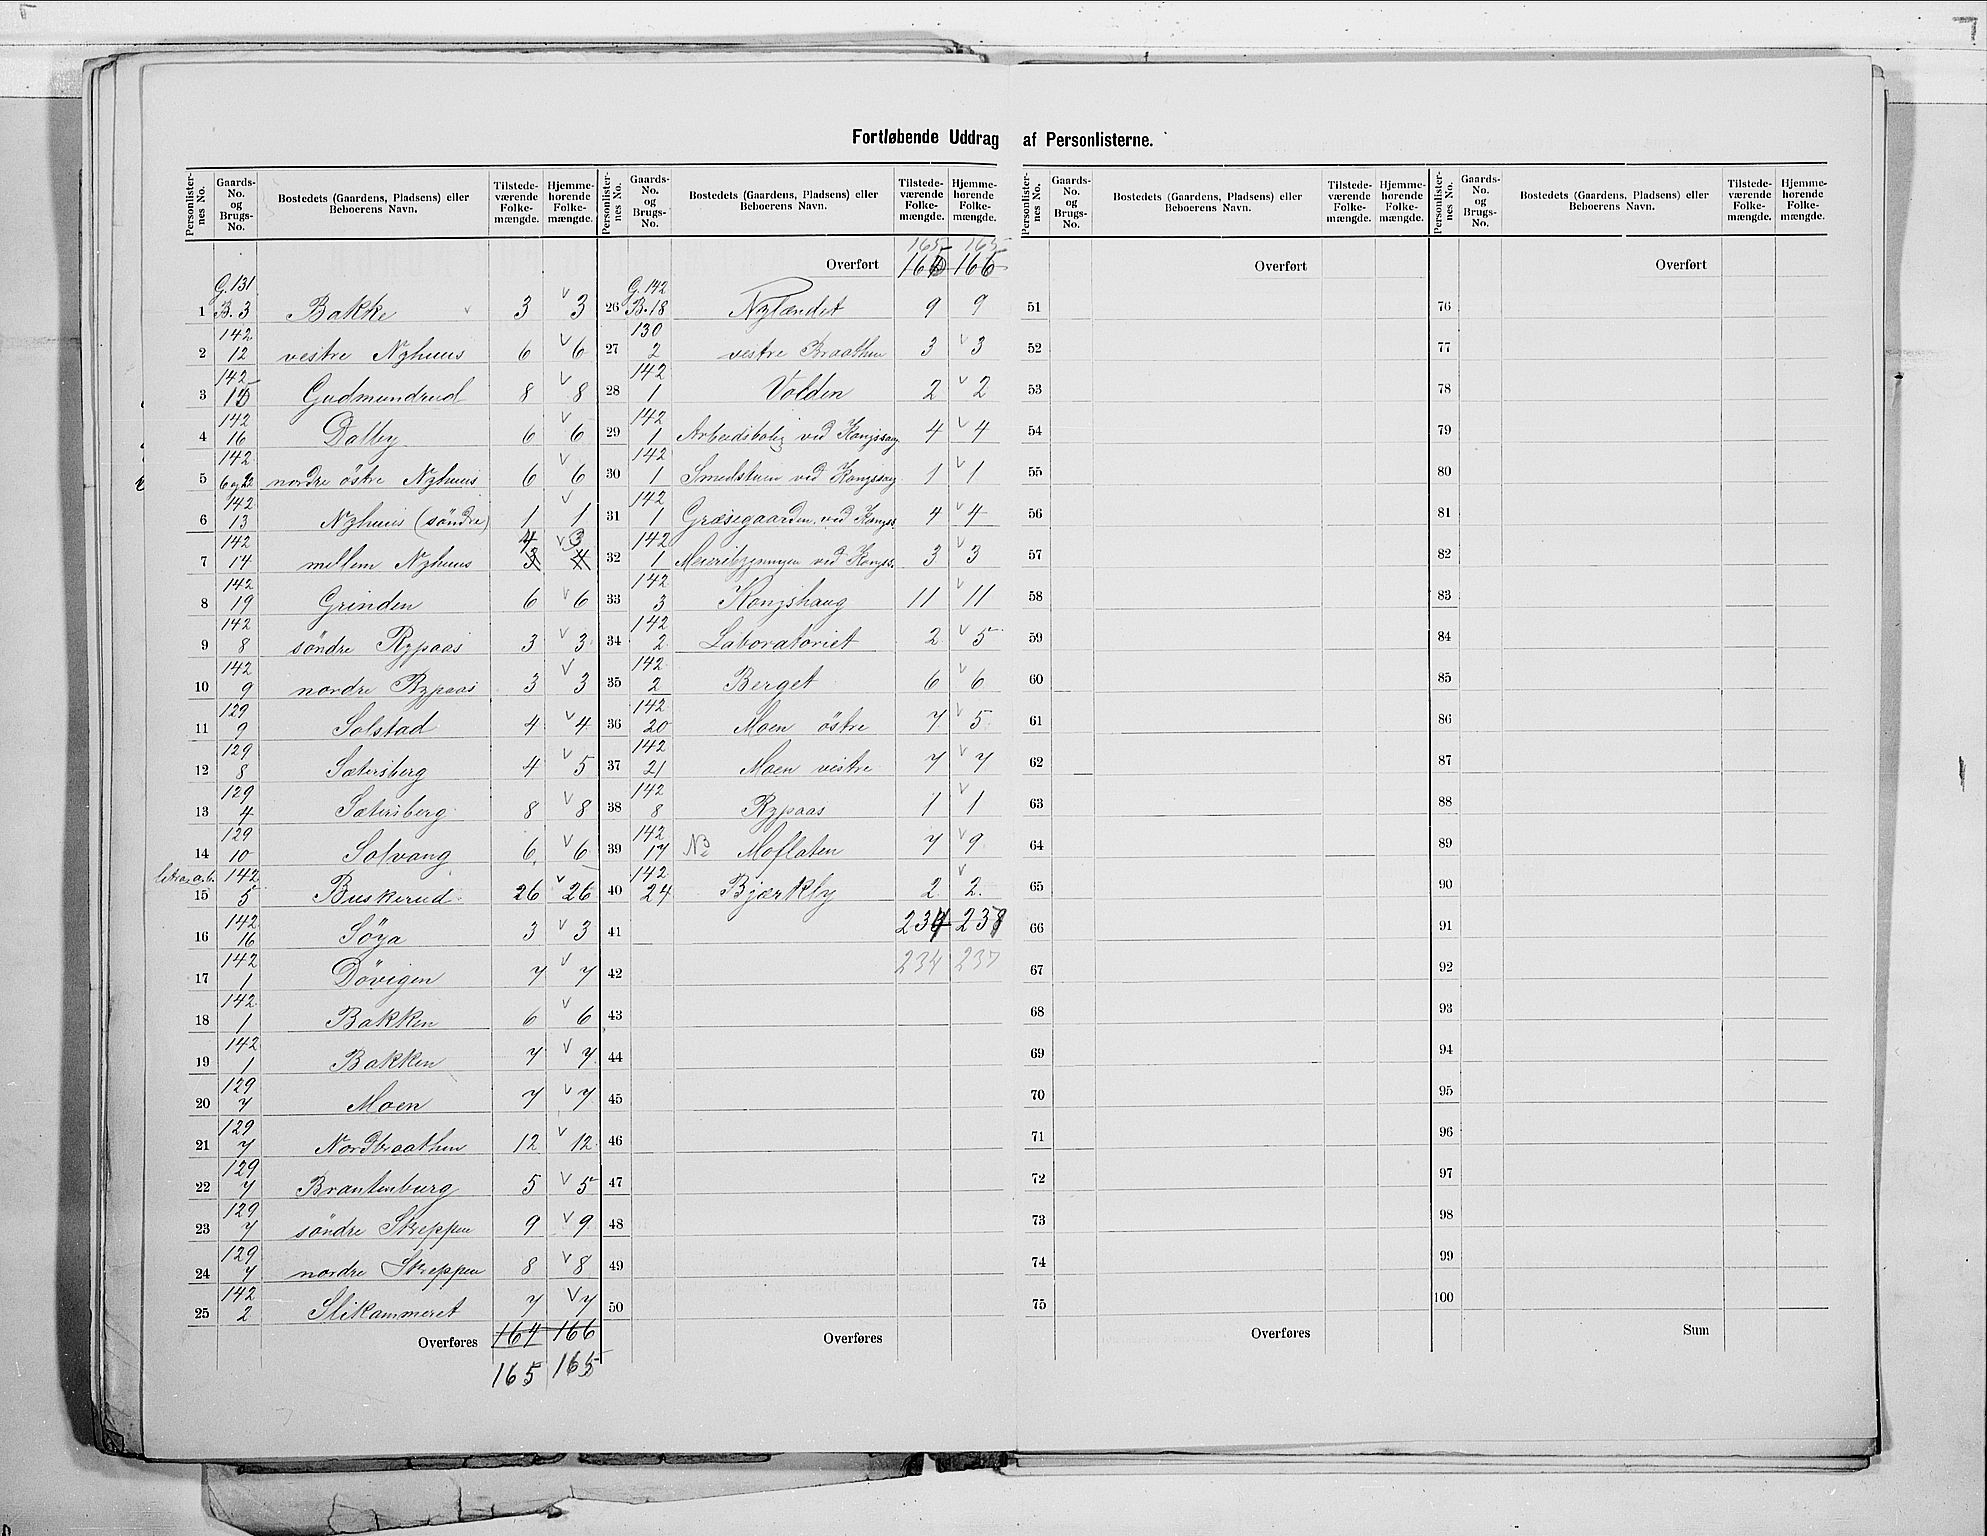 Fortløbende Uddrag af Personlisterne.
Personlisternes No. | Gaards-No. og Brugs-No. | Bostedets (Gaardens, Pladsens) eller Beboerens Navn. | Tilstedeværende Folkemængde. | Hjemmehørende Folkemængde.
G. 131
1 B. 3 Bakke 3 3
142
2 12 vestre Nyhuus 6 6
142
3 Gudmundrud 8 8
142
4 16 Dalby 6 6
142
5 nordre östre Nyhuus 6 6
142
6 13 Nyhuus (söndre) 1 1
142 4 3
7 14 mellem Nyhuus 3 4
142
8 19 Grinden 6 6
142
9 8 söndre Rypaas 3 3
142
10 9 nordre Rypaas 3 3
129
11 9 Solstad 4 4
129
12 8 Sætersberg 4 5
129
13 4 Sætersberg 8 8
129
14 10 Solvang 6 6
litra a.b. 142
15 5 Buskerud 26 26
142
16 16 Söya 3 3
142
17 1 Dövigen 7 7
142
18 1 Bakken 6 6
142
19 1 Bakken 7 7
129
20 7 Moen 7 7
129
21 7 Nordbraathen 12 12
129
22 7 Brantenburg 5 5
129
23 7 söndre Skreppen 9 9
129
24 7 nordre Skreppen 8 8
142
25 2 Slikammeret 7 7
Overføres 164 166
165 165
165 165
Overført 166
G. 142
26 B. 18 Nylændet 9 9
130
27 2 vestre Braathen 3 3
142
28 1 Volden 2 2
142
29 1 Arbeidsbolig ved Kongssag 4 4
142
30 1 Smedstuen ved Kongssag 1 1
142
31 1 Græsegaarden ved Kongss. 4 4
142
32 1 Meieribygningen ved Kongss. 3 3
142
33 3 Kongshaug 11 11
142
34 2 Laboratoriet 2 5
142
35 2 Berget 6 6
142
36 20 Moen östre 7 5
142
37 21 Moen vestre 7 7
142
38 8 Rypaas 1 1
142
39 17 Moflaten 7 9
142
40 24 Bjærkly 2 2
41 234 237
42 234 237
43
44
45
46
47
48
49
50
Overføres
Personlisternes No. | Gaards-No. og Brugs-No. | Bostedets (Gaardens, Pladsens) eller Beboerens Navn. | Tilstedeværende Folkemængde. | Hjemmehørende Folkemængde.
Overført
51
52
53
54
55
56
57
58
59
60
61
62
63
64
65
66
67
68
69
70
71
72
73
74
75
Overføres
Overført
76
77
78
79
80
81
82
83
84
85
86
87
88
89
90
91
92
93
94
95
96
97
98
99
100
Sum